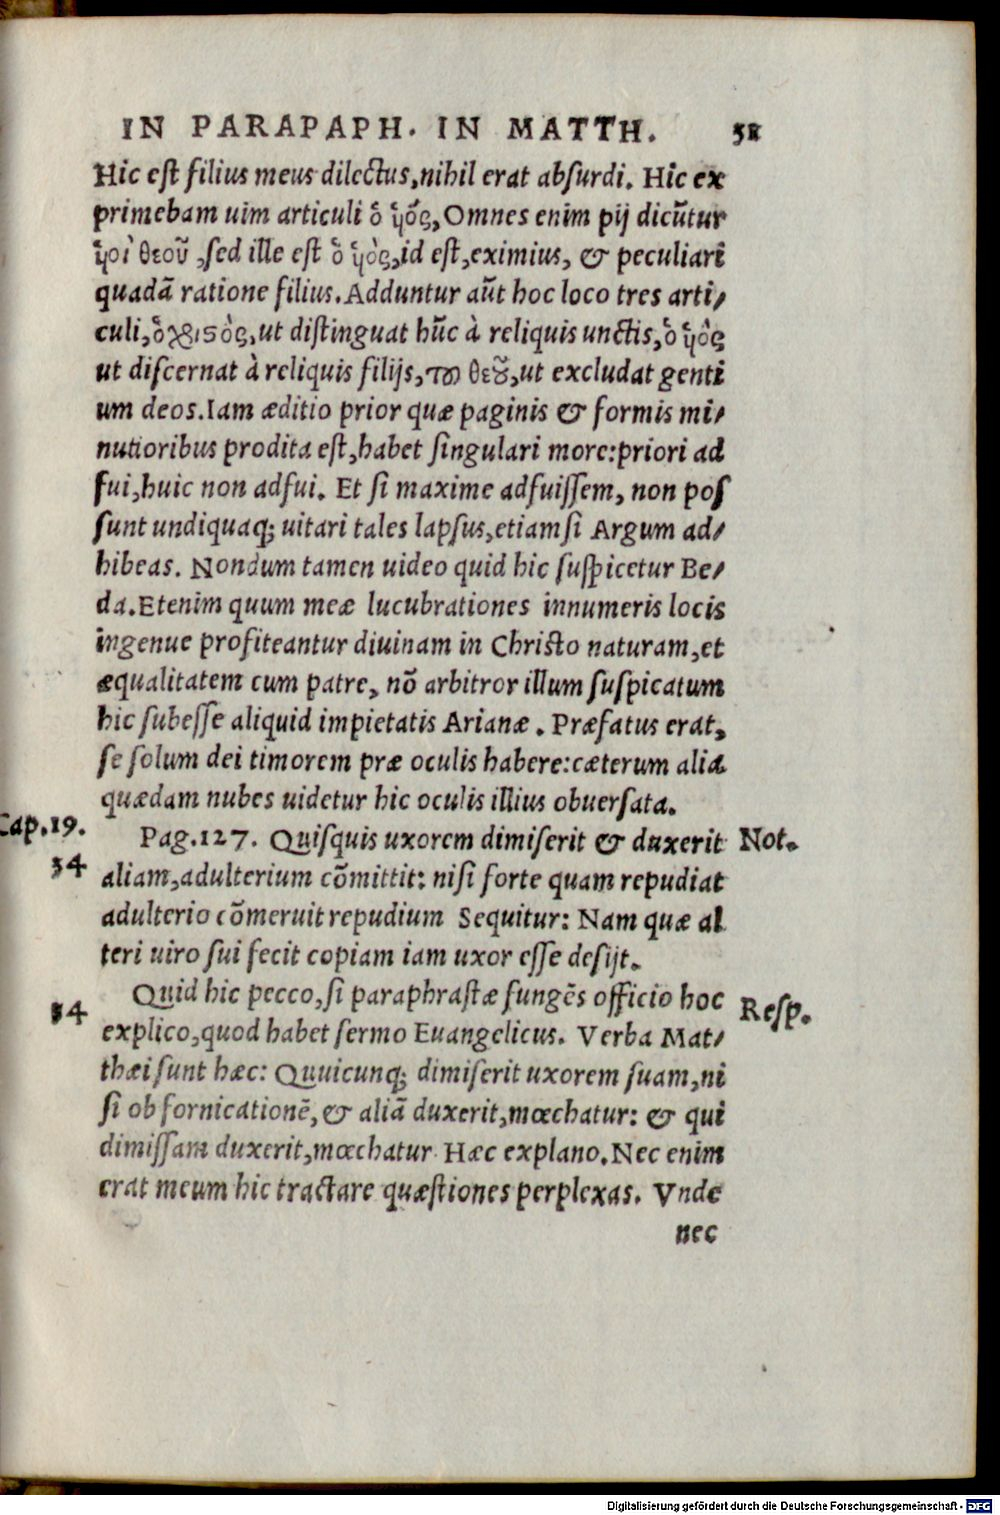 IN PARAPAPH. IN MATTH. 58
Hic est filius meus dilectus, nihil erat absurdi. Hic ex
primebam uim articuli ὁ ὑιός, Omnes enim pij dicũtur
ὑιοὶ θεοῦ, sed ille est ὁ ὑιὸς, id est, eximius, & peculiari
quadã ratione filius. Adduntur aũt hoc loco tres arti/
culi, ὁ χριϛὸς, ut distinguat hũc à reliquis unctis, ὁ ὑιὸς
ut discernat à reliquis filijs, τοῦ θεοῦ, ut excludat genti
um deos. Iam æditio prior quæ paginis & formis mi/
nutioribus prodita est, habet singulari more: priori ad
fui, huic non adfui. Et si maxime adfuissem, non pos
sunt undiquaq; uitari tales lapsus, etiamsi Argum ad/
hibeas. Nondum tamen uideo quid hic suspicetur Be/
da. Etenim quum meæ lucubrationes innumeris locis
ingenue profiteantur diuinam in Christo naturam, et
æqualitatem cum patre, nõ arbitror illum suspicatum
hic subesse aliquid impietatis Arianæ. Præfatus erat,
se solum dei timorem præ oculis habere: cæterum alia
quædam nubes uidetur hic oculis illius obuersata.
Cap. 19. Pag. 127. Quisquis uxorem dimiserit & duxerit Not.
34 aliam, adulterium cõmittit: nisi forte quam repudiat
adulterio cõmeruit repudium Sequitur: Nam quæ al
teri uiro sui fecit copiam iam uxor esse desijt.
34 Quid hic pecco, si paraphrastæ fungẽs officio hoc Resp.
explico, quod habet sermo Euangelicus. Verba Mat/
thæi sunt hæc: Quuicunq; dimiserit uxorem suam, ni
si ob fornicationẽ, & aliã duxerit, mœchatur: & qui
dimissam duxerit, mœchatur. Hæc explano. Nec enim
erat meum hic tractare quæstiones perplexas. Vnde
nec
Digitalisierung gefördert durch die Deutsche Forschungsgemeinschaft - DFG